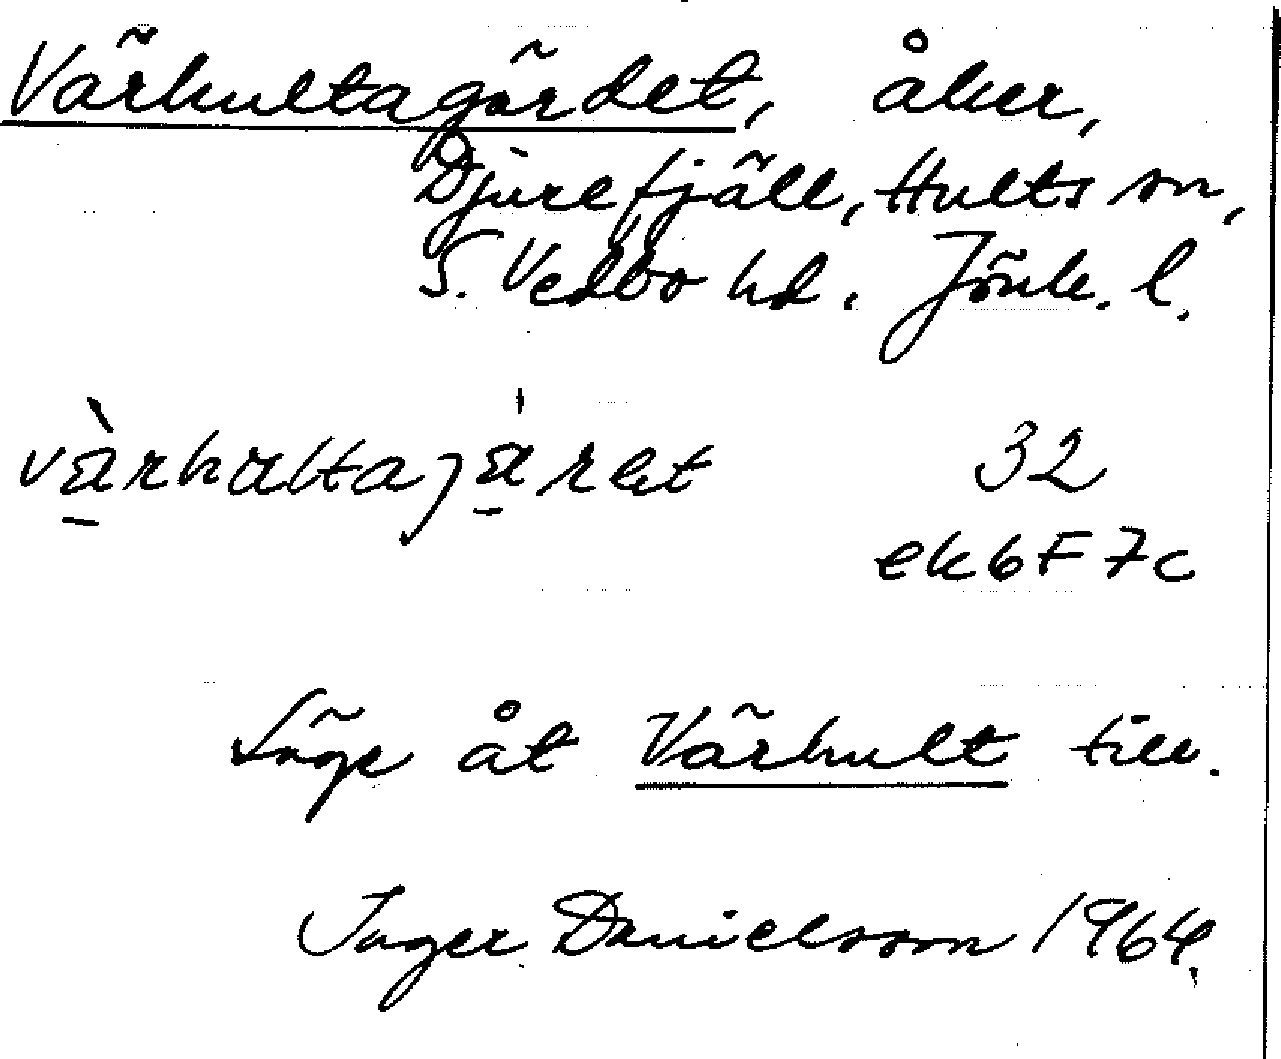 Värhultagärdet, åker,
Djurefjäll, Hults sn,
S. Vedbo hd. Jönk. l.
vàrhultajáret 32
ek6F7c
Läge åt Värhult till.
Inger Danielsson 1964.